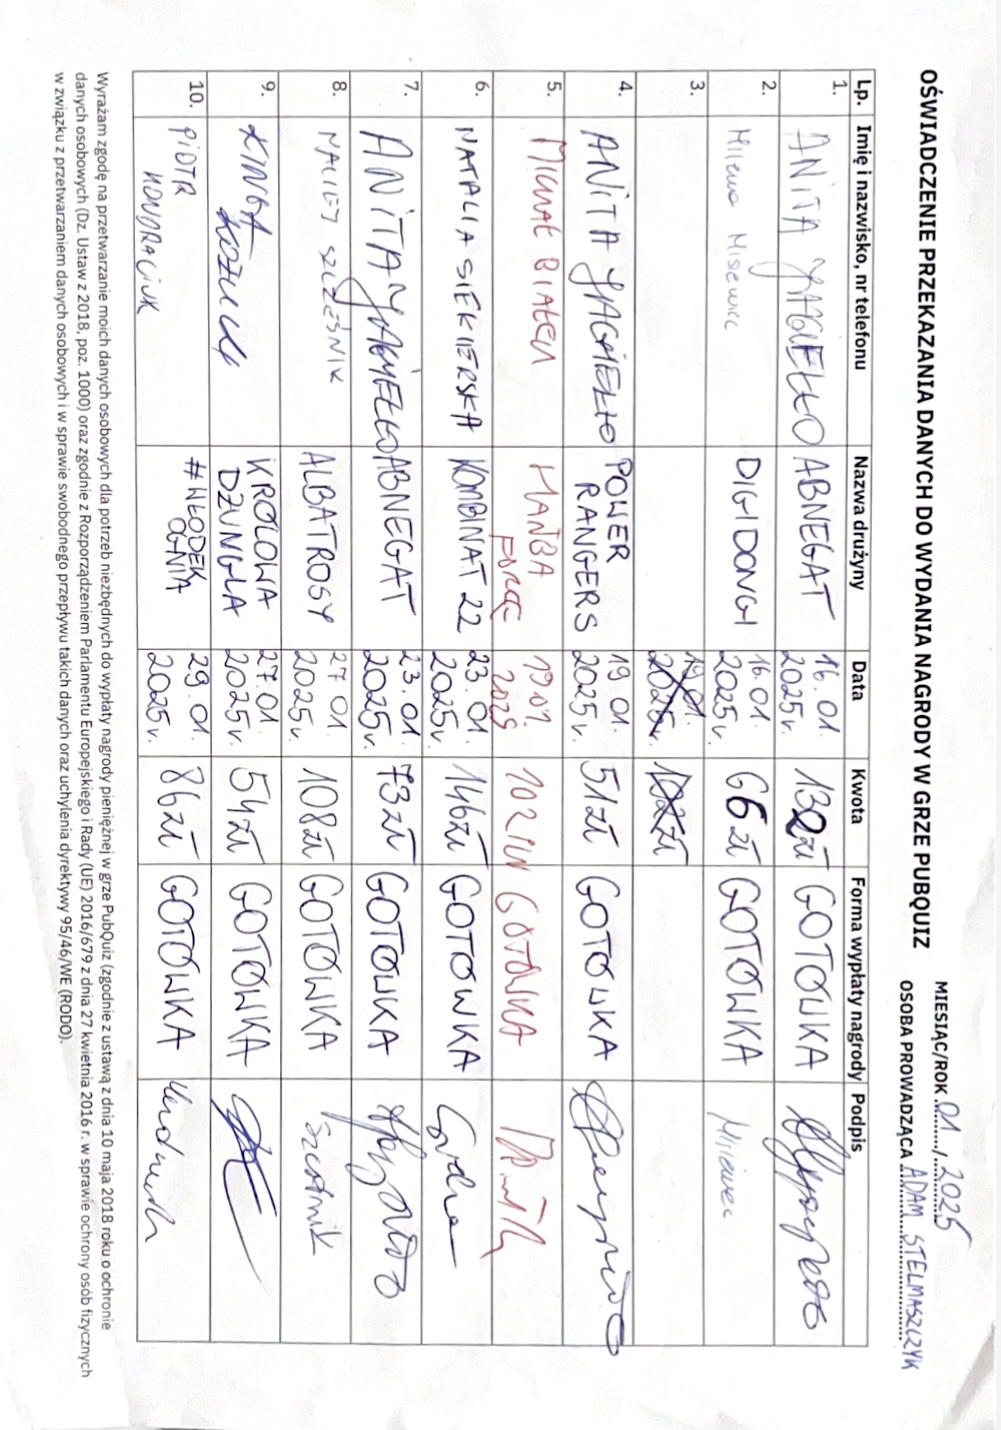 OŚWIADCZENIE PRZEKAZANIA DANYCH DO WYDANIA NAGRODY W GRZE PUBQUIZ
MIESIĄC/ROK 01 / 2025
OSOBA PROWADZĄCA ADAM STELMASZCZYK
Lp. Imię i nazwisko, nr telefonu Nazwa drużyny Data Kwota Forma wypłaty nagrody Podpis
1. ANITA JAGIEŁŁO ABNEGAT 16.01. 2025r. 132zł GOTÓWKA
2. Milena Misiewicz DIGIDONGI 16.01. 2025r. 66zł GOTÓWKA
3. 19.01. 2025r. 102zł
4. ANITA JAGIEŁŁO POWER RANGERS 19.01. 2025r. 51zł GOTÓWKA
5. MICHAŁ BIAŁEK HAŃBA FORĄC 19.01. 2025 102 PLN GOTÓWKA
6. NATALIA SIEKIERSKA KOMBINAT 22 23.01. 2025r. 146zł GOTÓWKA
7. ANITA JAGIEŁŁO ABNEGAT 23.01. 2025r. 73zł GOTÓWKA
8. MACIEJ SZCZEŚNIK ALBATROSY 27.01. 2025r. 108zł GOTÓWKA
9. KINGA KRÓLOWA DŻUNGLA 27.01. 2025r. 54zł GOTÓWKA
10. PIOTR KONDRACIUK #WŁODEK OGNIA 29.01. 2025r. 86zł GOTÓWKA
Wyrażam zgodę na przetwarzanie moich danych osobowych dla potrzeb niezbędnych do wypłaty nagrody pieniężnej w grze PubQuiz (zgodnie z ustawą z dnia 10 maja 2018 roku o ochronie
danych osobowych (Dz. Ustaw z 2018, poz. 1000) oraz zgodnie z Rozporządzeniem Parlamentu Europejskiego i Rady (UE) 2016/679 z dnia 27 kwietnia 2016 r. w sprawie ochrony osób fizycznych
w związku z przetwarzaniem danych osobowych i w sprawie swobodnego przepływu takich danych oraz uchylenia dyrektywy 95/46/WE (RODO).